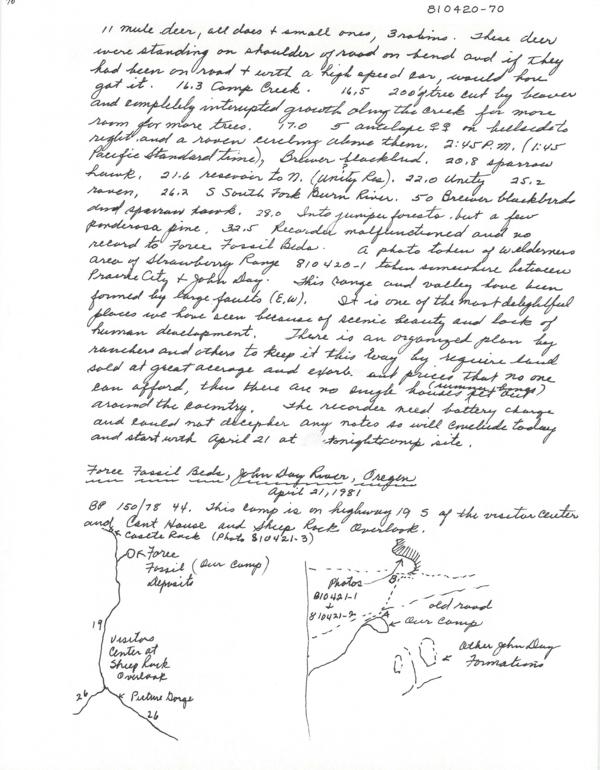 810420-70
11 mule deer, all does + small ones, 3 robins. These deer
were standing on shoulder of road on bend and if they
had been on road + with a high speed car, would have
got it. 16.3 Camp Creek. 16.5 200 g tree cut by beaver
and completely interupted growth along the creek for more
room for more trees. 17.0 5 antelope ♀♀ on hillside to
right and a raven circling above them. 2:45 P.M. (1:45
Pacific Standard time), Brewer blackbird. 20.8 sparrow
hawk. 21.6 resevoir to N. (Unity Res). 22.0 Unity 25.2
raven, 26.2 S South Fork Burn River. 50 Brewer blackbirds
and sparrow hawk. 28.0 Into juniper forests but a few
ponderosa pine. 32.5 Recorder malfunctioned and no
record to Foree Fossil Beds. A photo taken of Wilderness
area of Strawberry Range 810420-1 taken somewhere between
Prairie City + John Day. This range and valley have been
formed by large faults (E,W). It is one of the most delightful
places we have seen because of scenic beauty and lack of
human development. There is an organized plan by
ranchers and others to keep it this way by require land
sold at great acerage and exorb prices that no one
can afford, thus there are no single houses (summer) set out
around the country. The recorder need battery charge
and could not decipher any notes so will conclude today
and start with April 21 at tonights camp site.
Foree Fossil Beds, John Day River, Oregon
April 21, 1981
BP 150/78 44. This camp is on highway 19 S of the visitor center
and Cant House and Sheep Rock Overlook.
Castle Rock (Photo 810421-3)
Foree
Fossil (Our Camp)
Deposits
19
Visitors
Center at
Sheep Rock
Overlook
26
Picture Gorge
26
Photos
810421-1
+
810421-2
B
A
old road
Our Camp
Other John Day
Formations